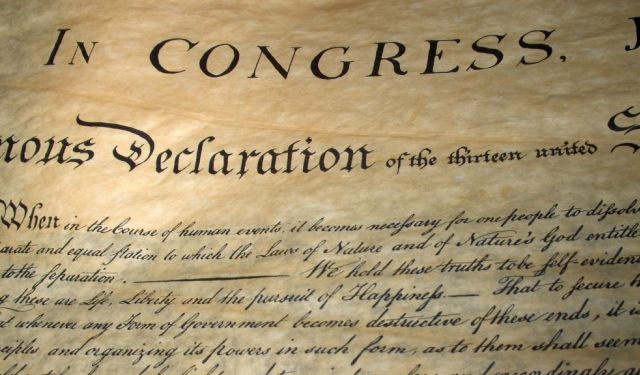 IN CONGRESS.
mous Declaration of the thirteen united S
When in the Course of human events, it becomes necessary for one people to dissolv
arate and equal station to which the Laws of Nature and of Nature's God entitle
to the separation. We hold these truths to be self-eviden
g these are Life, Liberty and the pursuit of Happiness. — That to secure th
at whenever any Form of Government becomes destructive of these ends, it is
ciples and organizing its powers in such form, as to them shall seem